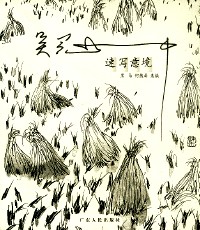 吴冠中
速写意境
广东人民出版社